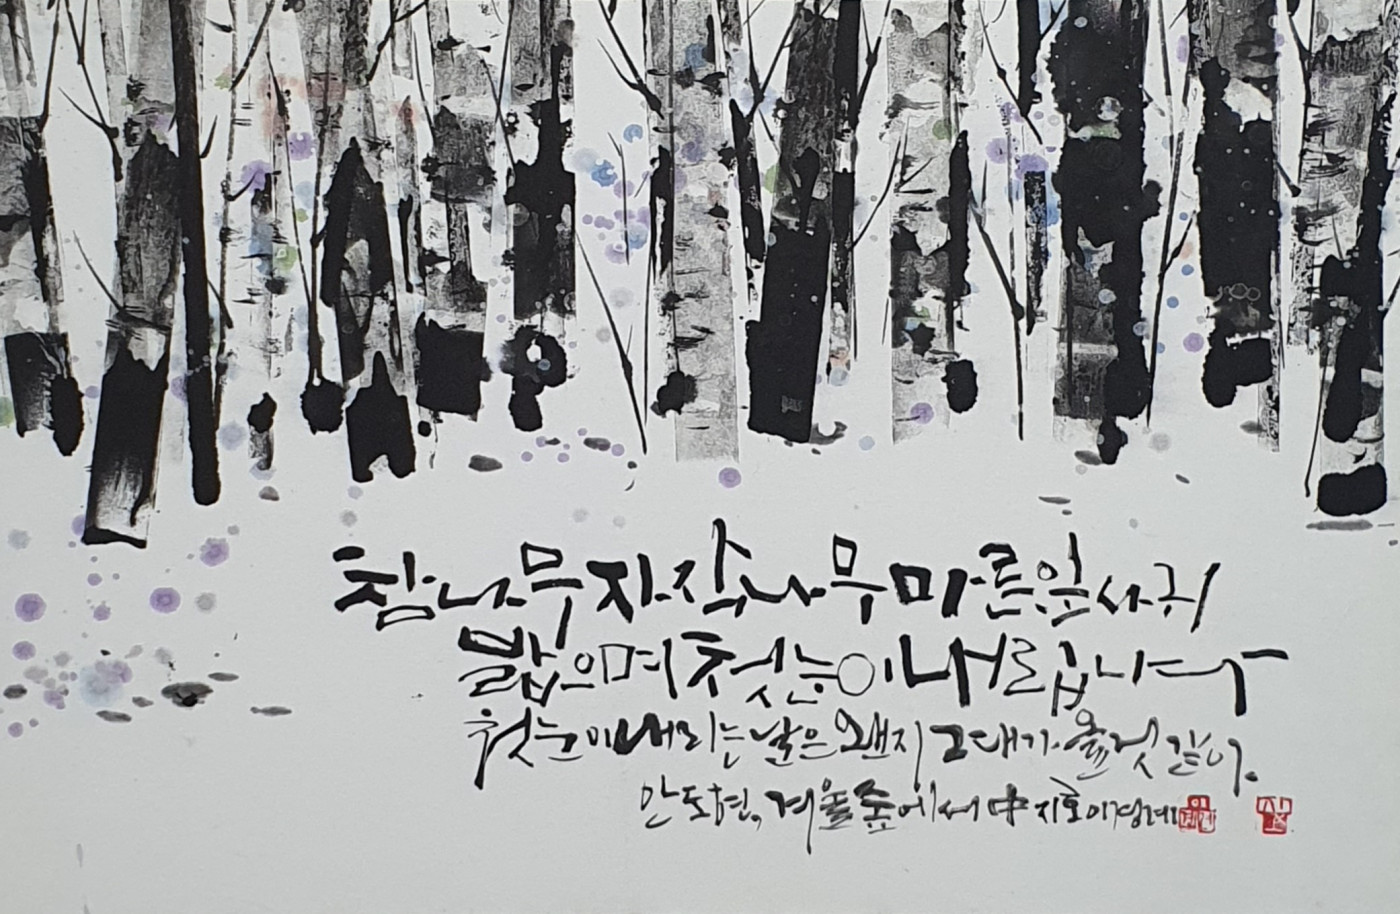 참나무 자작나무 마른 잎사귀
밟으며 첫눈이 내립니다
첫눈이 내리는 날은 왠지 그대가 올 것 같아
안도현, 겨울숲에서 中 지호 이경례